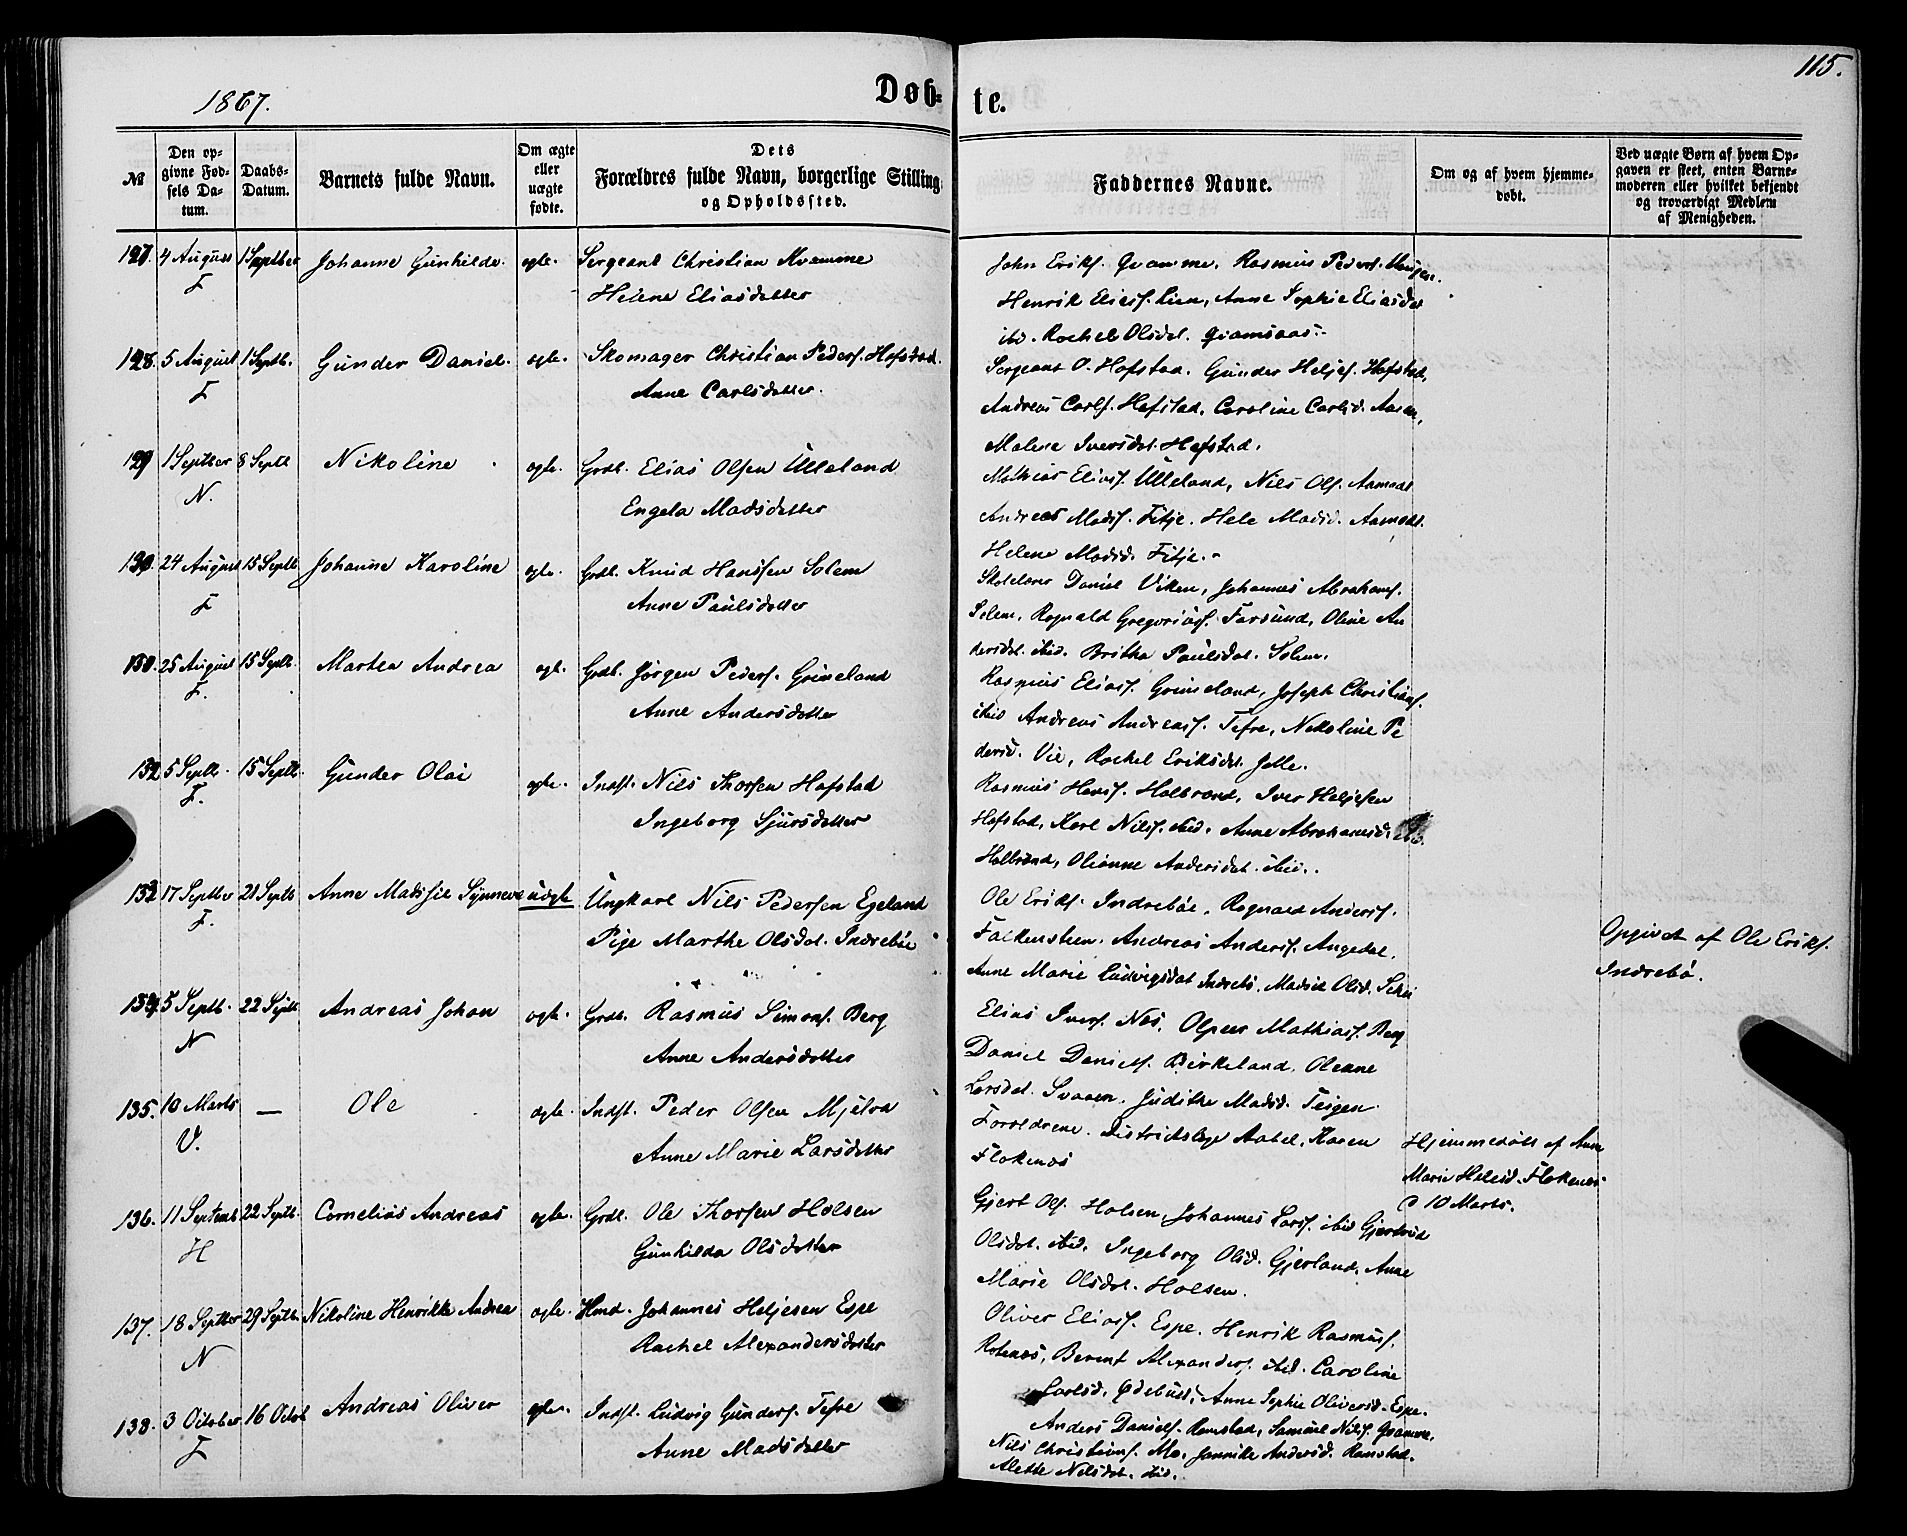 1867.
Døb-
te.
115.
№
Den op-
givne Fød-
sels Da-
tum.
Daabs-
Datum.
Barnets fulde Navn.
Om ægte
eller
uægte
fødte.
Dets
Forældres fulde Navn, borgerlige Stilling
og Opholdssted.
Faddernes Navne.
Om og af hvem hjemme-
døbt.
Ved uægte Børn af hvem Op-
gaven er skeet, enten Barne-
moderen eller hvilket bekjendt
og troværdigt Medlem
af Menigheden.
127. 4 August 1 Septber Johanne Gunhilde. ægte. Sergeant Christian Kvamme
F
Helene Eliasdatter
John Eriks. Qvamme, Rasmus Peders.
Henrik Elias. Lien, Anne Sophie Eliasdat
ibid. Rachel Olsdat. Qvamsaas.
128. 5 August 1 Septb. Gunder Daniel. ægte. Skomager Christian Peders. Hofstad.
F
Anne Carlsdatter.
Sergeant O. Hofstad. Gunder Heljes. Hofstad,
Andreas Carls. Hofstad, Caroline Carlsd. Aasen,
Malene Iversdat. Hofstad.
129 1 Septber 8 Septb Nikoline ægte. Grdb. Elias Olsen Ulleland
N.
Engela Madsdatter
Mathias Elias. Ulleland, Nils Ols. Aamodt
Andreas Mads. Fitje. Hele Madsd. Aamodt.
Helene Madsd. Fitje.
130. 24 August 15 Septb Johanne Karoline ægte. Grdb. Knud Hanssen Solem
F
Anne Paulsdatter
Skolelærer Daniel Viken, Johannes Abrahams.
Solem, Rognald Gregorius. Farsund, Oline An
dersdat. ibid. Britha Paulsdat. Solem.
131. 25 August 15 Septb. Marthea Andrea ægt. Grdb. Jørgen Peders. Grimeland
F.
Anne Andersdatter
Rasmus Elias. Grimeland, Joseph Christians.
ibid Andreas Andreass. Tefre, Nikoline Pe
dersd. Vie, Rachel Eriksdat. Jelle.
132 5 Septb. 15 Septb. Gunder Olai ægte. Indst. Nils Thorsen Hofstad
F.
Ingeborg Sjursdatter
Rasmus Hans. Halbrend, Iver Heljesen
Hofstad, Karl Nils. ibid. Anne Abrahamsd. ibid.
Halbrend, Olianne Andersdat. ibid.
133 17 Septber 21 Septb Anne Madssie Synneve uægte Ungkarl Nils Pedersen Egeland
F.
Pige Marthe Olsdat. Indrebøe
Ole Eriks. Indrebøe, Rognald Anders.
Falkensteen. Andreas Anders. Angedal,
Anne Marie Ludvigsdat Indrebø. Madsie Olsd.
Opgivet af Ole Eriks.
Indrebø.
134. 5 Septb. 22 Septb Andreas Johan ægte. Grdb. Rasmus Simons. Berg
N
Anne Andersdatter
Elias Ivers. Nes, Olpeer Mathias. Berg
Daniel Daniels. Birkeland. Oleane
Larsdat. Svaaen. Judithe Madsd. Teigen.
135. 10 Marts — Ole ægte. Indst. Peder Olsen Mjelva
V.
Anne Marie Larsdatter
Forældrene. Distriktslæge Aabel, Karen
Flokenes
Hjemmedøbt af Anne
Marie Flokenes
d 10 Marts.
136. 11 Septemb 22 Septb. Cornelius Andreas ægte. Grdb. Ole Thorsen Holsen
H
Gunhilda Olsdatter
Gjert Ols. Holsen, Johannes Lars. ibid Gjertrud
Olsdat. ibid. Ingeborg Olsd. Gjerland. Anne
Marie Olsdat. Holsen.
137. 18 Septber 29 Septb. Nikoline Henrikke Andrea ægte. Hmd. Johannes Heljesen Espe
N
Rachel Alexandersdatter
Oliver Elias. Espe. Henrik Rasmus.
Rotenes, Berent Alexanders. ibid. Caroline
Carlsd. Ødebust, Anne Sophie Oliversd. Espe.
138. 3 October 16 Octob Andreas Oliver ægte. Indst. Ludvig Gunders. Tefre
F
Anne Madsdatter
Anders Daniels. Ramstad, Samuel Nils. Qvamme,
Nils Christians. Mo, Jannike Andersd. Ramstad.
Alette Nilsdat. ibid.